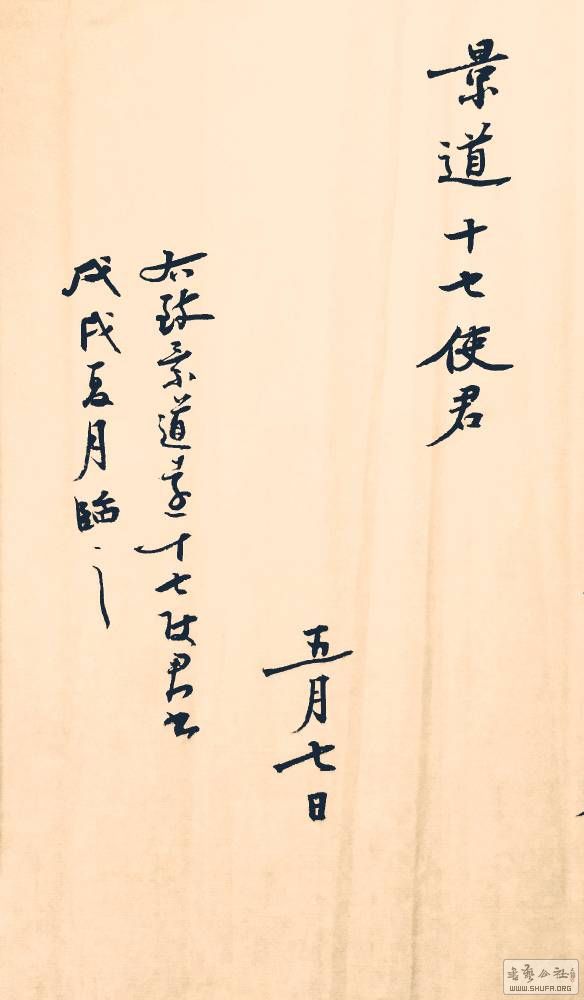 景道十七使君
五月七日
右致景道十七使君书
戊戌夏月臨之
书艺公社
WWW.SHUFA.ORG